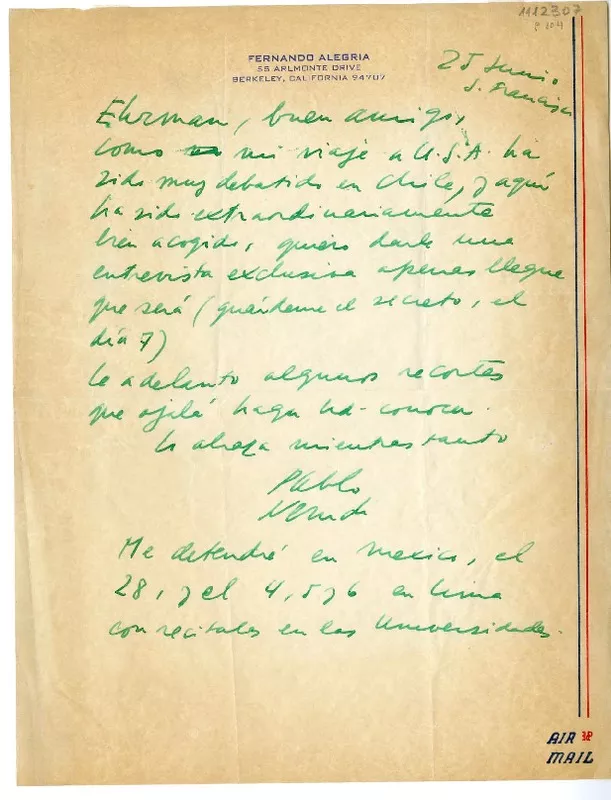 1112307
p 104
FERNANDO ALEGRIA
55 ARLMONTE DRIVE
BERKELEY, CALIFORNIA 94707
25 Junio
S. Francisco
Ehrman, buen amigo,
como mi viaje a U.S.A. ha
sido muy debatido en Chile, y aquí
ha sido extraordinariamente
bien acogido, quiero darle una
entrevista exclusiva apenas llegue
que será (guárdeme el secreto, el
día 7)
Le adelanto algunos recortes
que ojalá haga Ud. conocer.
Lo abraza mientras tanto
Pablo
Neruda
Me detendré en Mexico, el
28, y el 4, 5 y 6 en Lima
con recitales en las Universidades.
AIR
MAIL